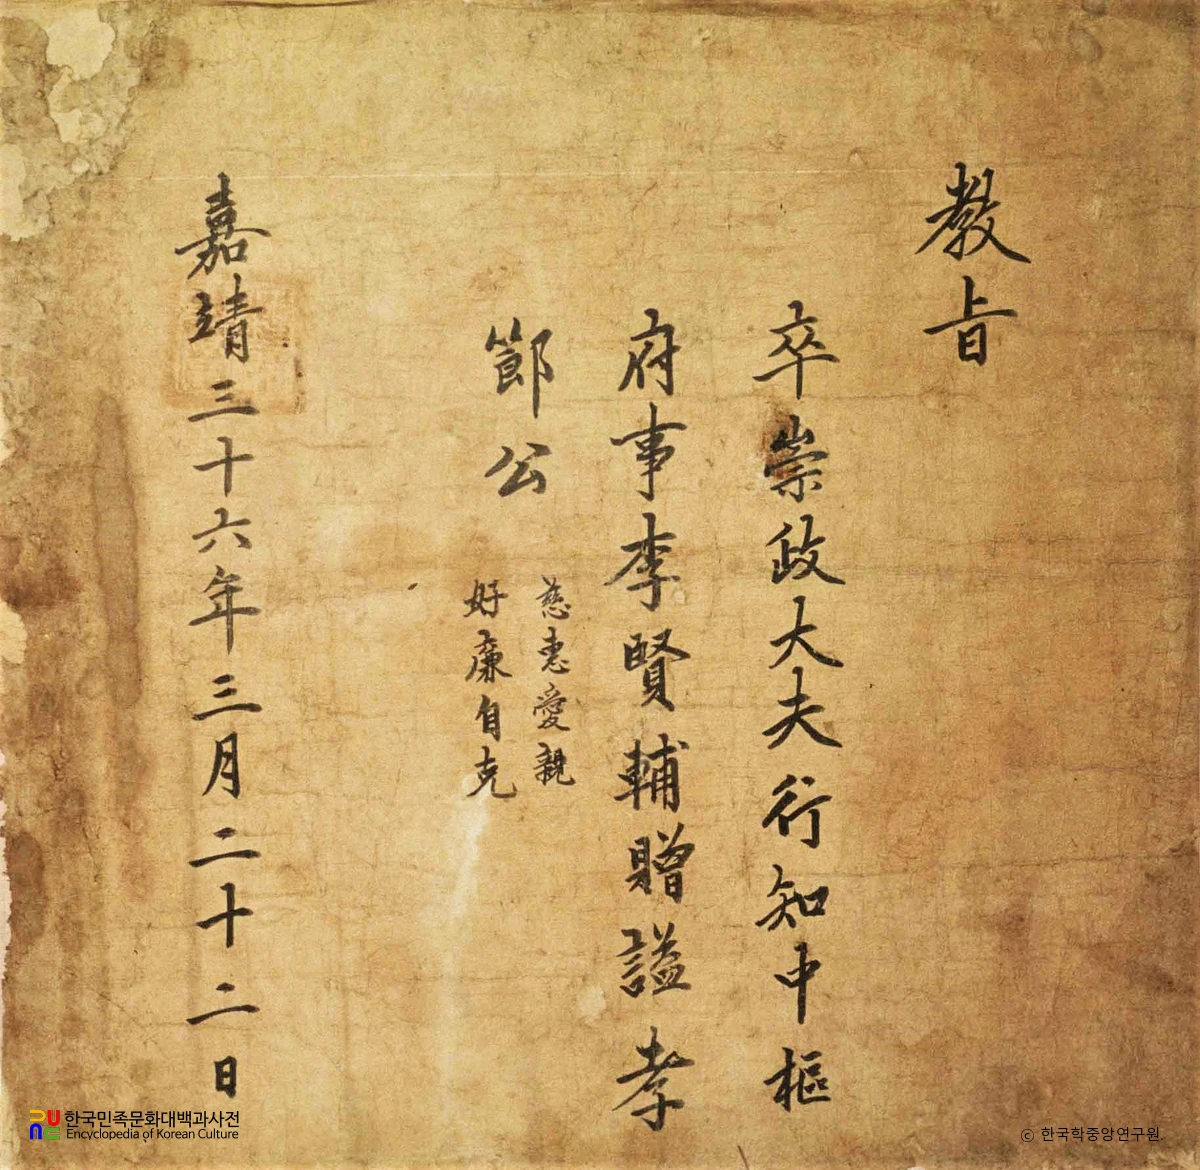 教旨
卒崇政大夫行知中樞
府事李賢輔贈謚孝
節公
慈惠愛親
好廉自克
嘉靖三十六年三月二十二日
한국민족문화대백과사전
Encyclopedia of Korean Culture
ⓒ 한국학중앙연구원.